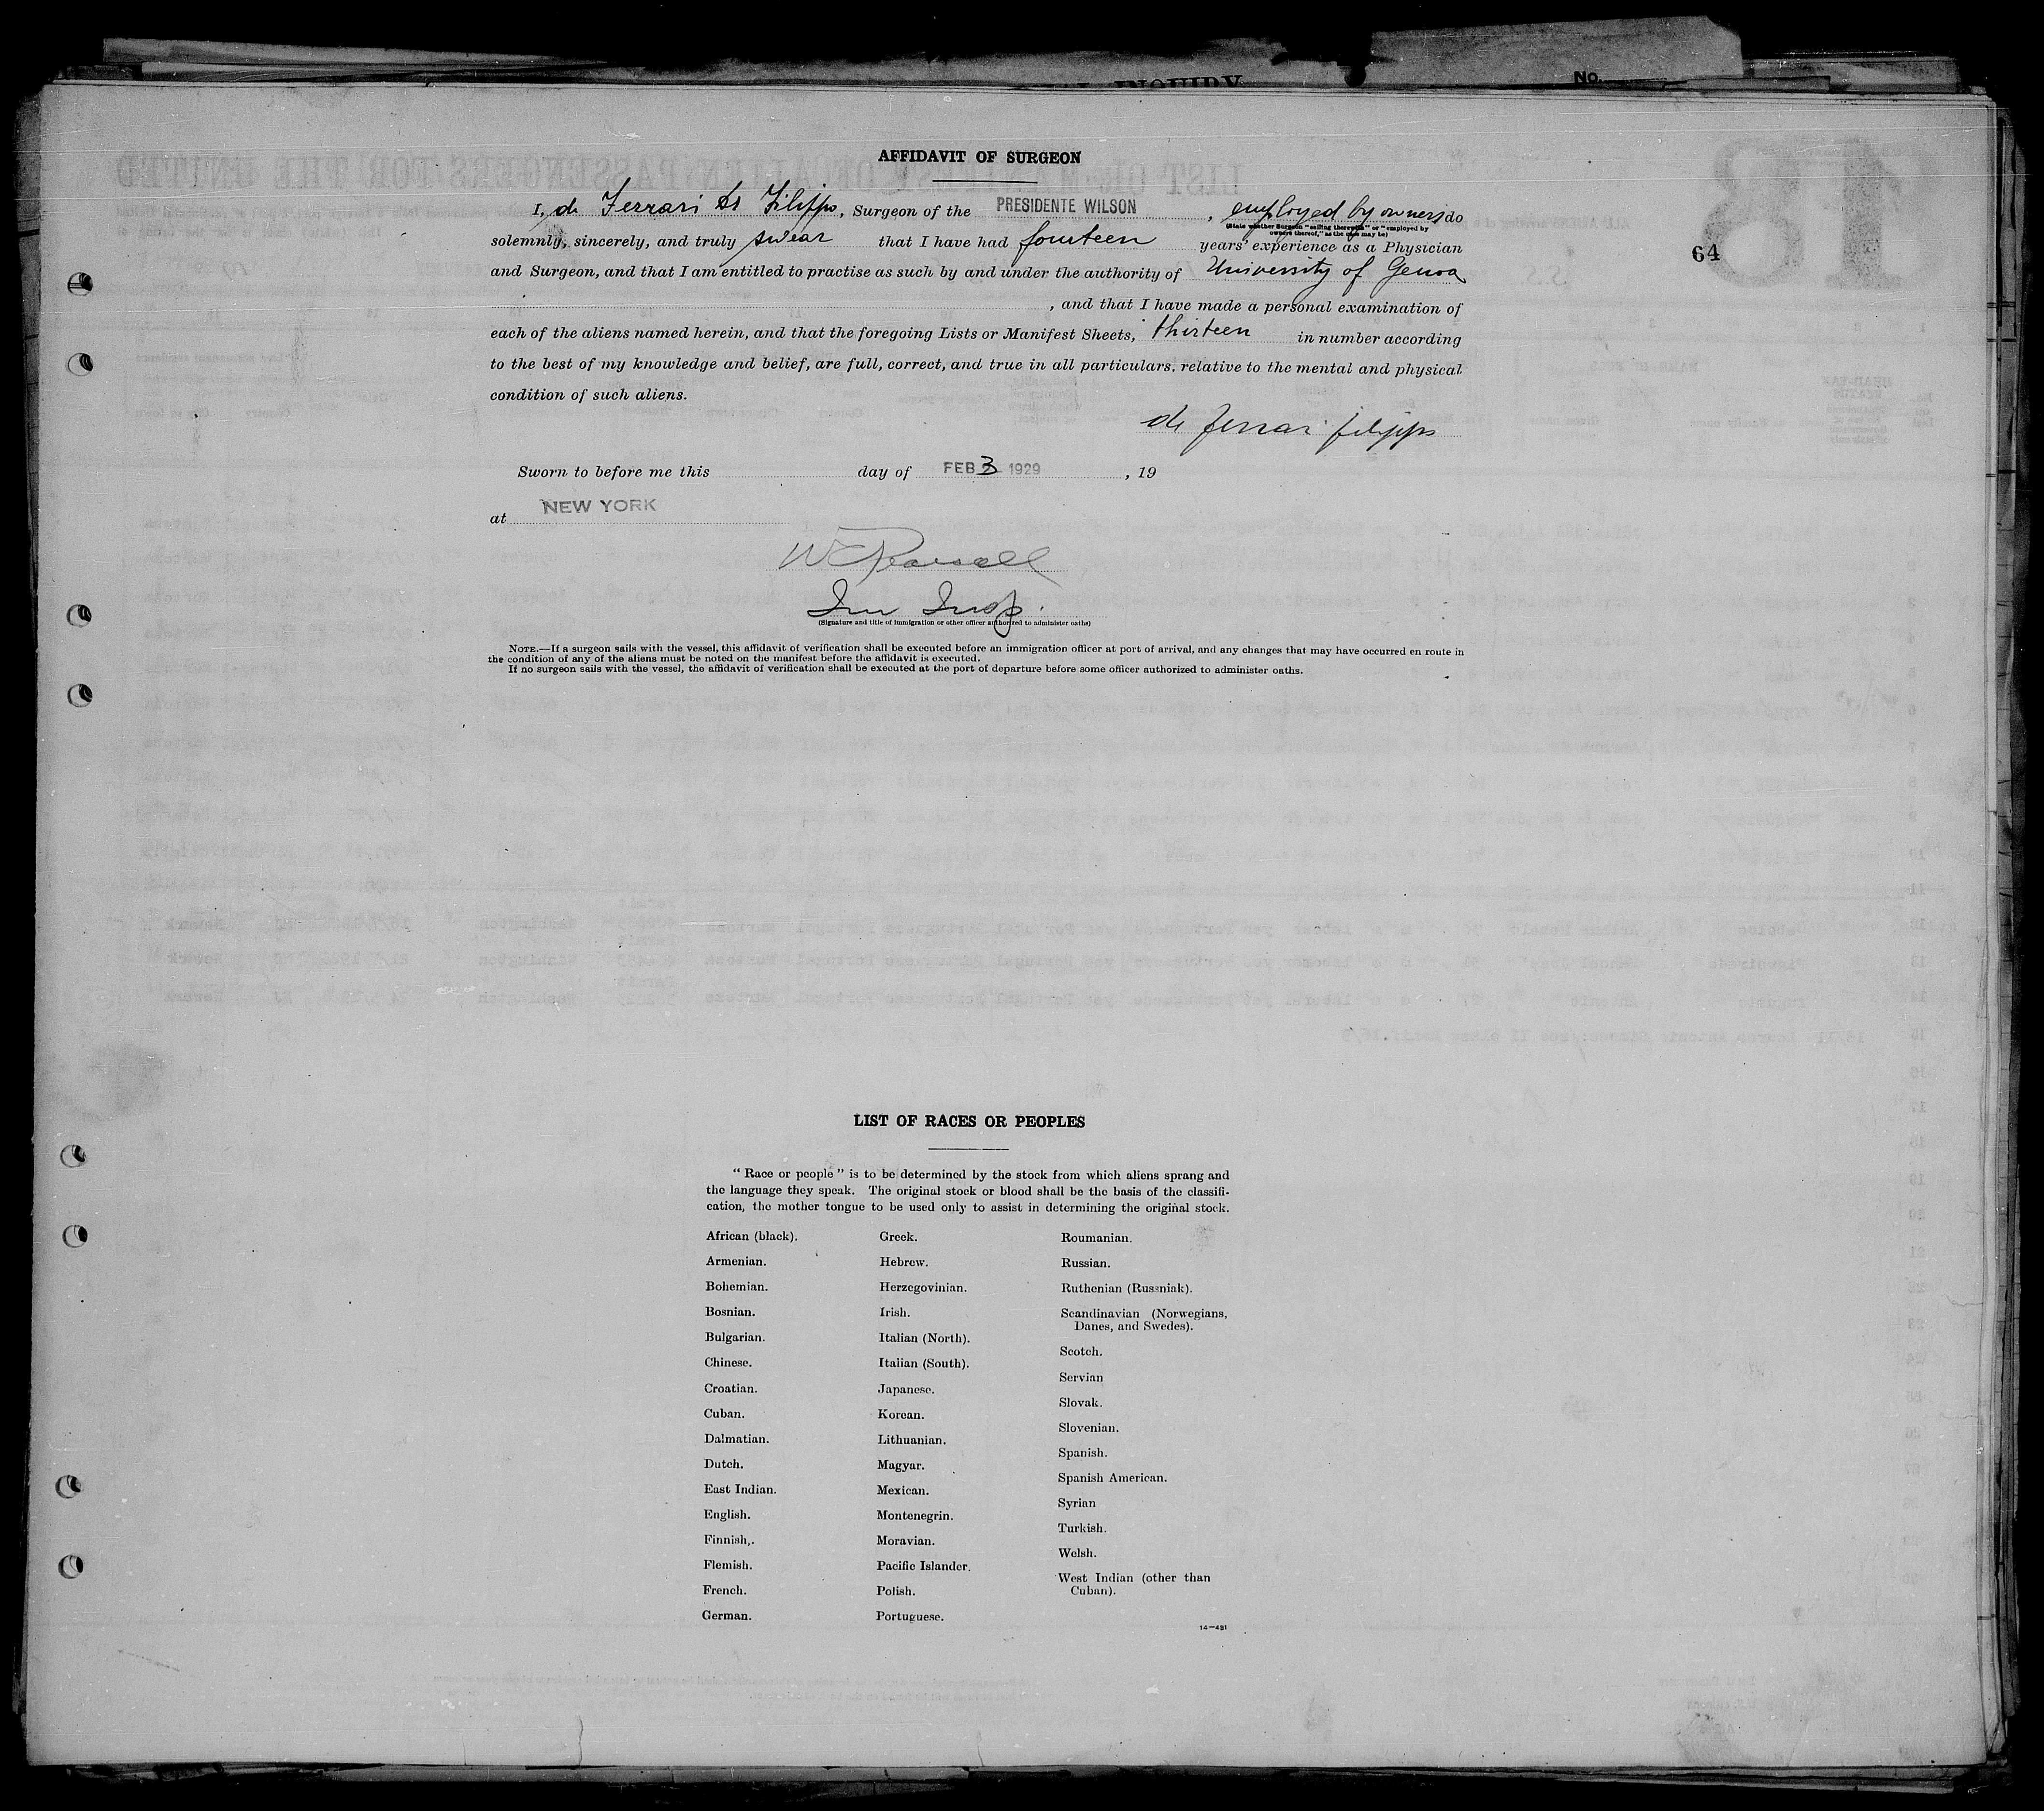 INQUIRY
No.
AFFIDAVIT OF SURGEON
I, de Ferrari Dr Filippo, Surgeon of the PRESIDENTE WILSON, employed by owners do
(State whether Surgeon "sailing therewith" or "employed by owners thereof," as the case may be)
solemnly, sincerely, and truly swear that I have had fourteen years' experience as a Physician
64
and Surgeon, and that I am entitled to practise as such by and under the authority of University of Genoa
, and that I have made a personal examination of
each of the aliens named herein, and that the foregoing Lists or Manifest Sheets, thirteen in number according
to the best of my knowledge and belief, are full, correct, and true in all particulars, relative to the mental and physical
condition of such aliens.
de Ferrari Filippo
Sworn to before me this day of FEB 3 1929, 19
at NEW YORK
Imm Insp.
(Signature and title of immigration or other officer authorized to administer oaths)
NOTE.—If a surgeon sails with the vessel, this affidavit of verification shall be executed before an immigration officer at port of arrival, and any changes that may have occurred en route in
the condition of any of the aliens must be noted on the manifest before the affidavit is executed.
If no surgeon sails with the vessel, the affidavit of verification shall be executed at the port of departure before some officer authorized to administer oaths.
LIST OF RACES OR PEOPLES
"Race or people" is to be determined by the stock from which aliens sprang and
the language they speak. The original stock or blood shall be the basis of the classifi-
cation, the mother tongue to be used only to assist in determining the original stock.
African (black).
Armenian.
Bohemian.
Bosnian.
Bulgarian.
Chinese.
Croatian.
Cuban.
Dalmatian.
Dutch.
East Indian.
English.
Finnish,.
Flemish.
French.
German.
Greek.
Hebrew.
Herzegovinian.
Irish.
Italian (North).
Italian (South).
Japanese.
Korean.
Lithuanian.
Magyar.
Mexican.
Montenegrin.
Moravian.
Pacific Islander.
Polish.
Portuguese.
Roumanian.
Russian.
Ruthenian (Russniak).
Scandinavian (Norwegians,
Danes, and Swedes).
Scotch.
Servian
Slovak.
Slovenian.
Spanish.
Spanish American.
Syrian
Turkish.
Welsh.
West Indian (other than
Cuban).
14—421